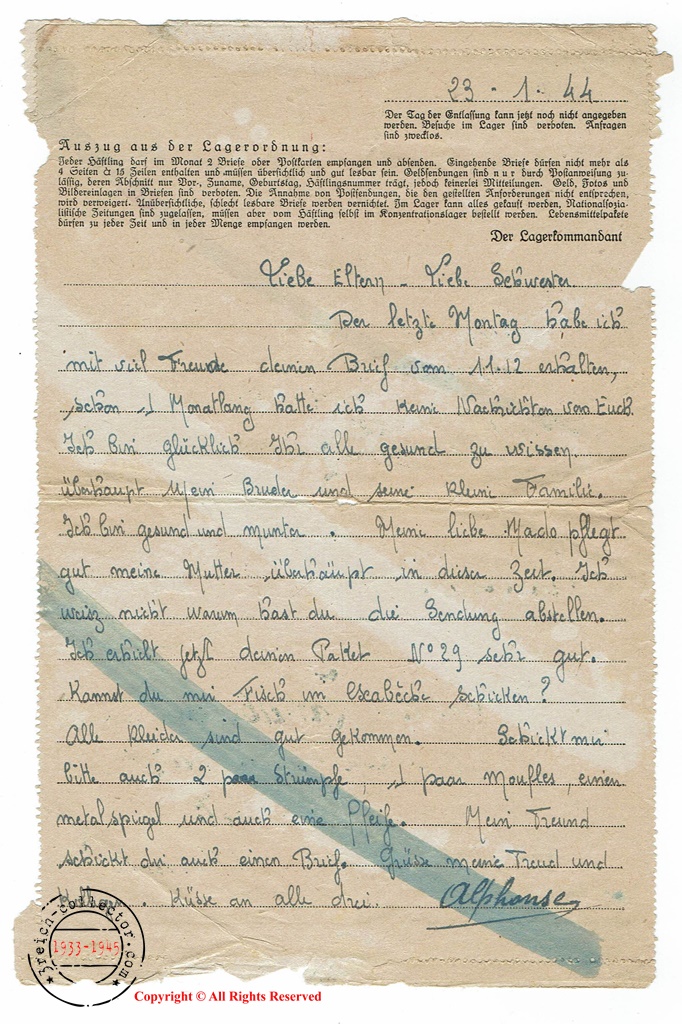 23 - 1 - 44
Der Tag der Entlassung kann jetzt noch nicht angegeben
werden. Besuche im Lager sind verboten. Anfragen
sind zwecklos.
Auszug aus der Lagerordnung:
Jeder Häftling darf im Monat 2 Briefe oder Postkarten empfangen und absenden. Eingehende Briefe dürfen nicht mehr als
4 Seiten à 15 Zeilen enthalten und müssen übersichtlich und gut lesbar sein. Geldsendungen sind nur durch Postanweisung zu-
lässig, deren Abschnitt nur Vor-, Zuname, Geburtstag, Häftlingsnummer trägt, jedoch keinerlei Mitteilungen. Geld, Fotos und
Bildereinlagen in Briefen sind verboten. Die Annahme von Postsendungen, die den gestellten Anforderungen nicht entsprechen,
wird verweigert. Unübersichtliche, schlecht lesbare Briefe werden vernichtet. Im Lager kann alles gekauft werden. Nationalsozia-
listische Zeitungen sind zugelassen, müssen aber vom Häftling selbst im Konzentrationslager bestellt werden. Lebensmittelpakete
dürfen zu jeder Zeit und in jeder Menge empfangen werden.
Der Lagerkommandant
Liebe Eltern - Liebe Schwester.
Der letzte Montag habe ich
mit viel Freude deinen Brief vom 11.12 erhalten,
schon 1 Monatlang hatte ich keine Nachrichten von Euch.
Ich bin glücklich Ihr alle gesund zu wissen.
überhaupt Mein Bruder und seine kleine Familie.
Ich bin gesund und munter. Meine liebe Mado pflegt
gut meine Mutter, überhaupt in dieser Zeit. Ich
weisz nicht warum hast du die Sendung abstellen.
Ich erhielt jetzt deinen Paket N° 29 sehr gut.
Kannst du mir Fisch im Escabèche schicken?
Alle kleider sind gut gekommen. Schickt mir
bitte auch 2 paar Strümpfe, 1 paar Moufles, einen
metalspiegel und auch eine Pfeife. Mein Freund
schickt dir auch einen Brief. Grüsse meine Freud und
Küsse an alle drei. Alphonse
3reich-collector.com
1933-1945
Copyright © All Rights Reserved